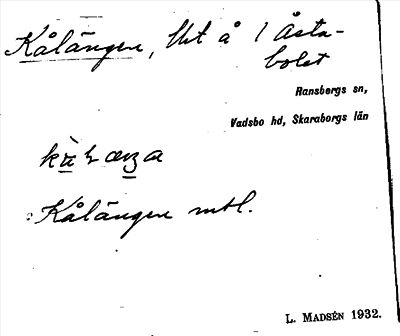 Kålängen, Ut å / Åsta-
bolet
Ransbergs sn,
Vadsbo hd, Skaraborgs län
Kålängen mtl.
L. MADSÉN 1932.